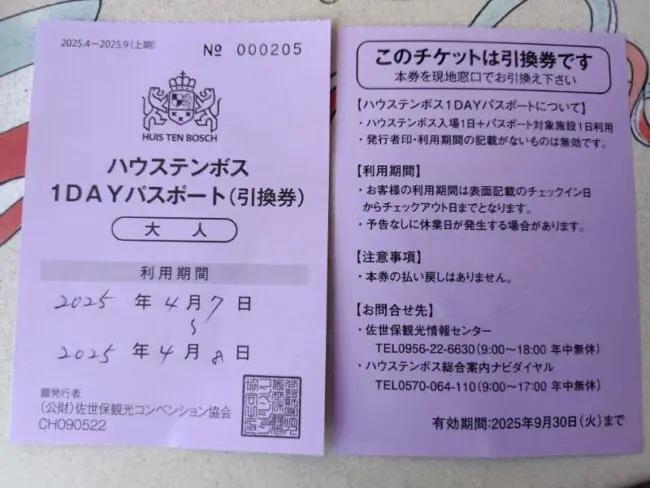 2025.4－2025.9(上期)
№ 000205
HUIS TEN BOSCH
ハウステンボス
1DAYパスポート(引換券)
大 人
利用期間
2025 年 4 月 7 日
〜
2025 年 4 月 8 日
■発行者
(公財)佐世保観光コンベンション協会
CH090522
このチケットは引換券です
本券を現地窓口でお引換え下さい
【ハウステンボス1DAYパスポートについて】
・ハウステンボス入場1日＋パスポート対象施設1日利用
・発行者印・利用期間の記載がないものは無効です。
【利用期間】
・お客様の利用期間は表面記載のチェックイン日
からチェックアウト日までとなります。
・予告なしに休業日が発生する場合があります。
【注意事項】
・本券の払い戻しはありません。
【お問合せ先】
・佐世保観光情報センター
TEL0956-22-6630(9:00〜18:00 年中無休)
・ハウステンボス総合案内ナビダイヤル
TEL0570-064-110(9:00〜17:00 年中無休)
有効期間:2025年9月30日(火)まで